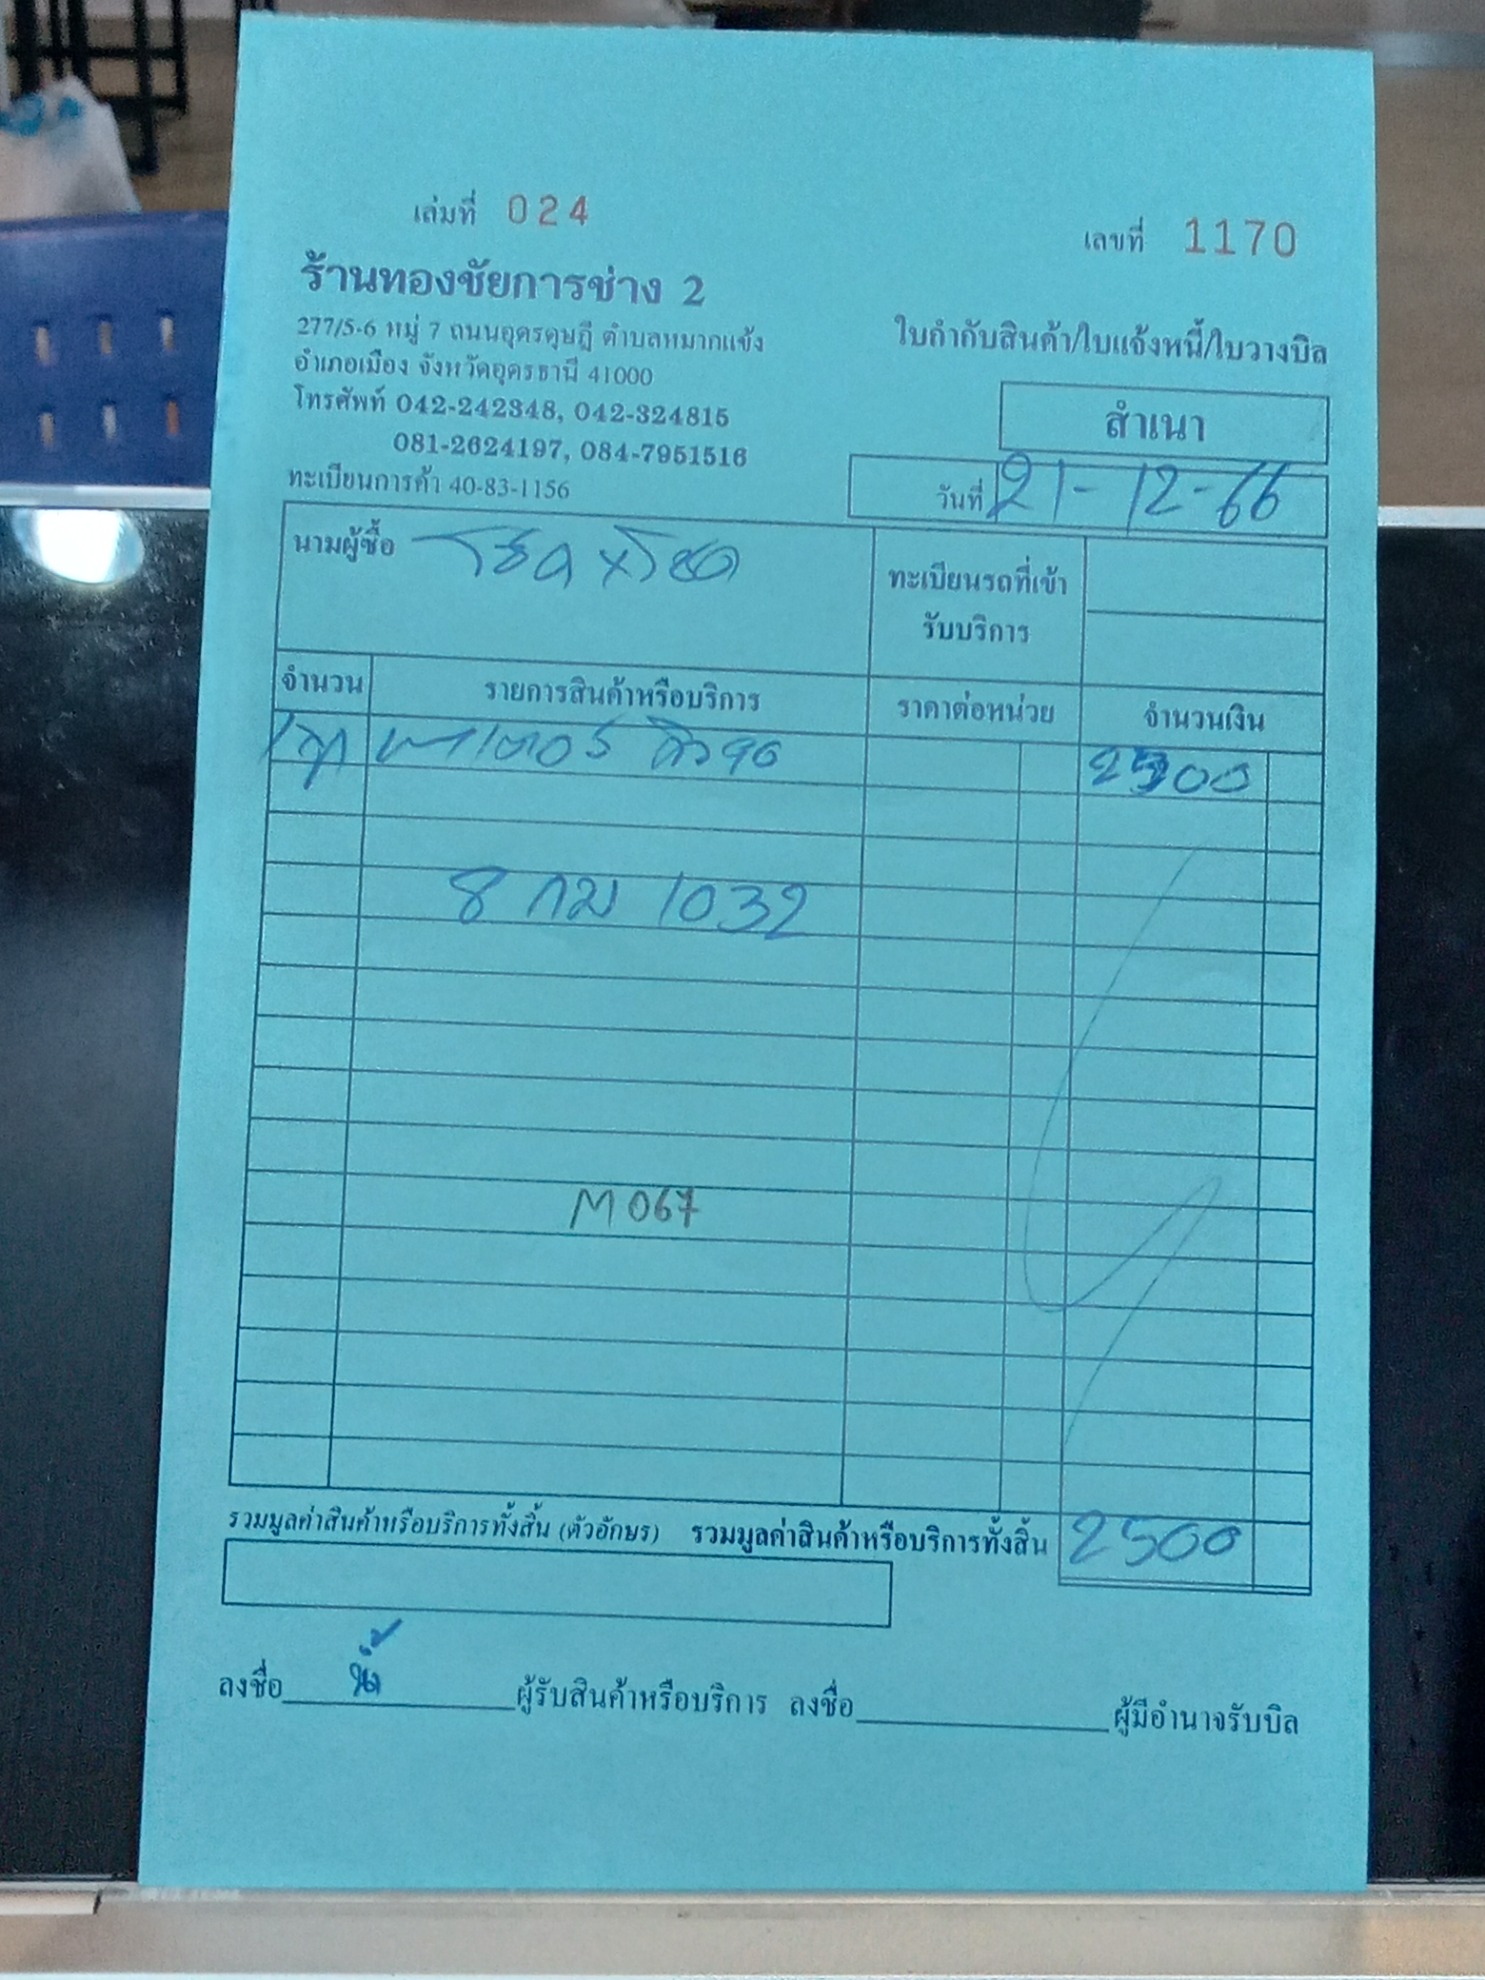 เล่มที่ 024
เลขที่ 1170
ร้านทองชัยการช่าง 2
277/5-6 หมู่ 7 ถนนอุดรดุษฎี ตำบลหมากแข้ง
อำเภอเมือง จังหวัดอุดรธานี 41000
โทรศัพท์ 042-242348, 042-324815
081-2624197, 084-7951516
ทะเบียนการค้า 40-83-1156
ใบกำกับสินค้า/ใบแจ้งหนี้/ใบวางบิล
สำเนา
วันที่ 21-12-66
นามผู้ซื้อ
ทะเบียนรถที่เข้า
รับบริการ
จำนวน รายการสินค้าหรือบริการ ราคาต่อหน่วย จำนวนเงิน
2500
8 กม 1032
M067
รวมมูลค่าสินค้าหรือบริการทั้งสิ้น (ตัวอักษร) รวมมูลค่าสินค้าหรือบริการทั้งสิ้น 2500
ลงชื่อ ผู้รับสินค้าหรือบริการ ลงชื่อ ผู้มีอำนาจรับบิล